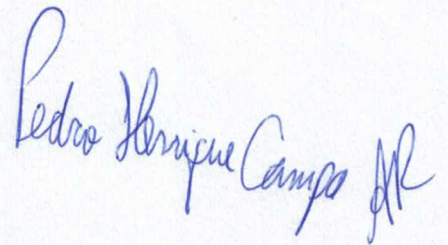 Pedro Henrique Campos AR